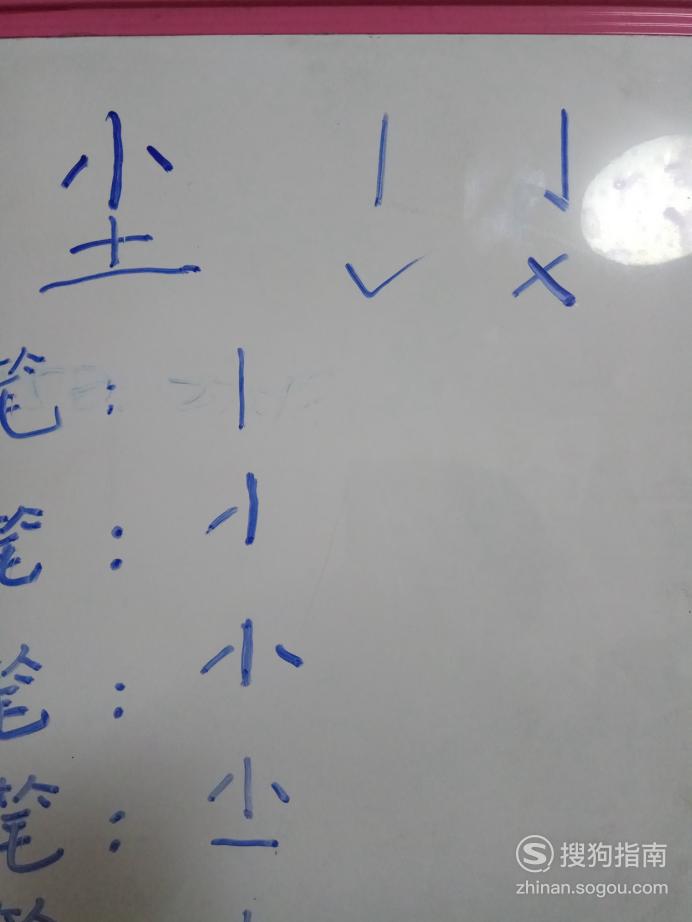 尘 丨 亅
✓ ×
笔：丨
笔：
笔：小
笔：
笔
搜狗指南
zhinan.sogou.com